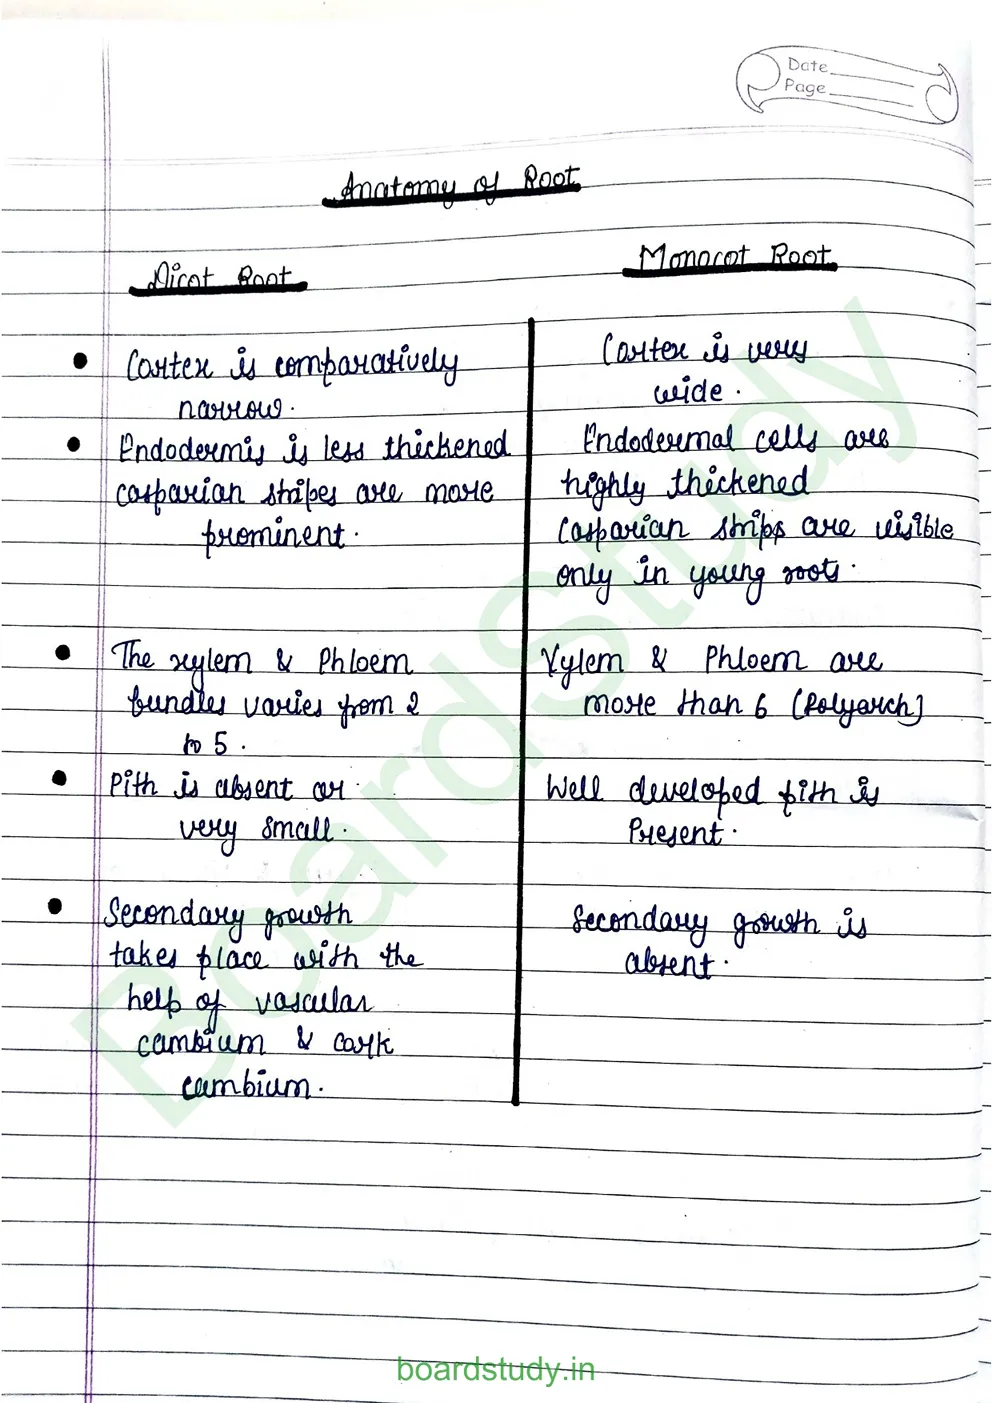 Date
Page
Anatomy of Root
Dicot Root
Monocot Root
• Cortex is comparatively
narrow.
• Endodermis is less thickened
casparian stripes are more
prominent.
• The xylem & Phloem
bundles varies from 2
to 5.
• Pith is absent or
very small.
• Secondary growth
takes place with the
help of vascular
cambium & cork
cambium.
Cortex is very
wide.
Endodermal cells are
highly thickened
Casparian strips are visible
only in young roots.
Xylem & Phloem are
more than 6 (Polyarch)
Well developed pith is
Present.
Secondary growth is
absent.
Boardstudy
boardstudy.in